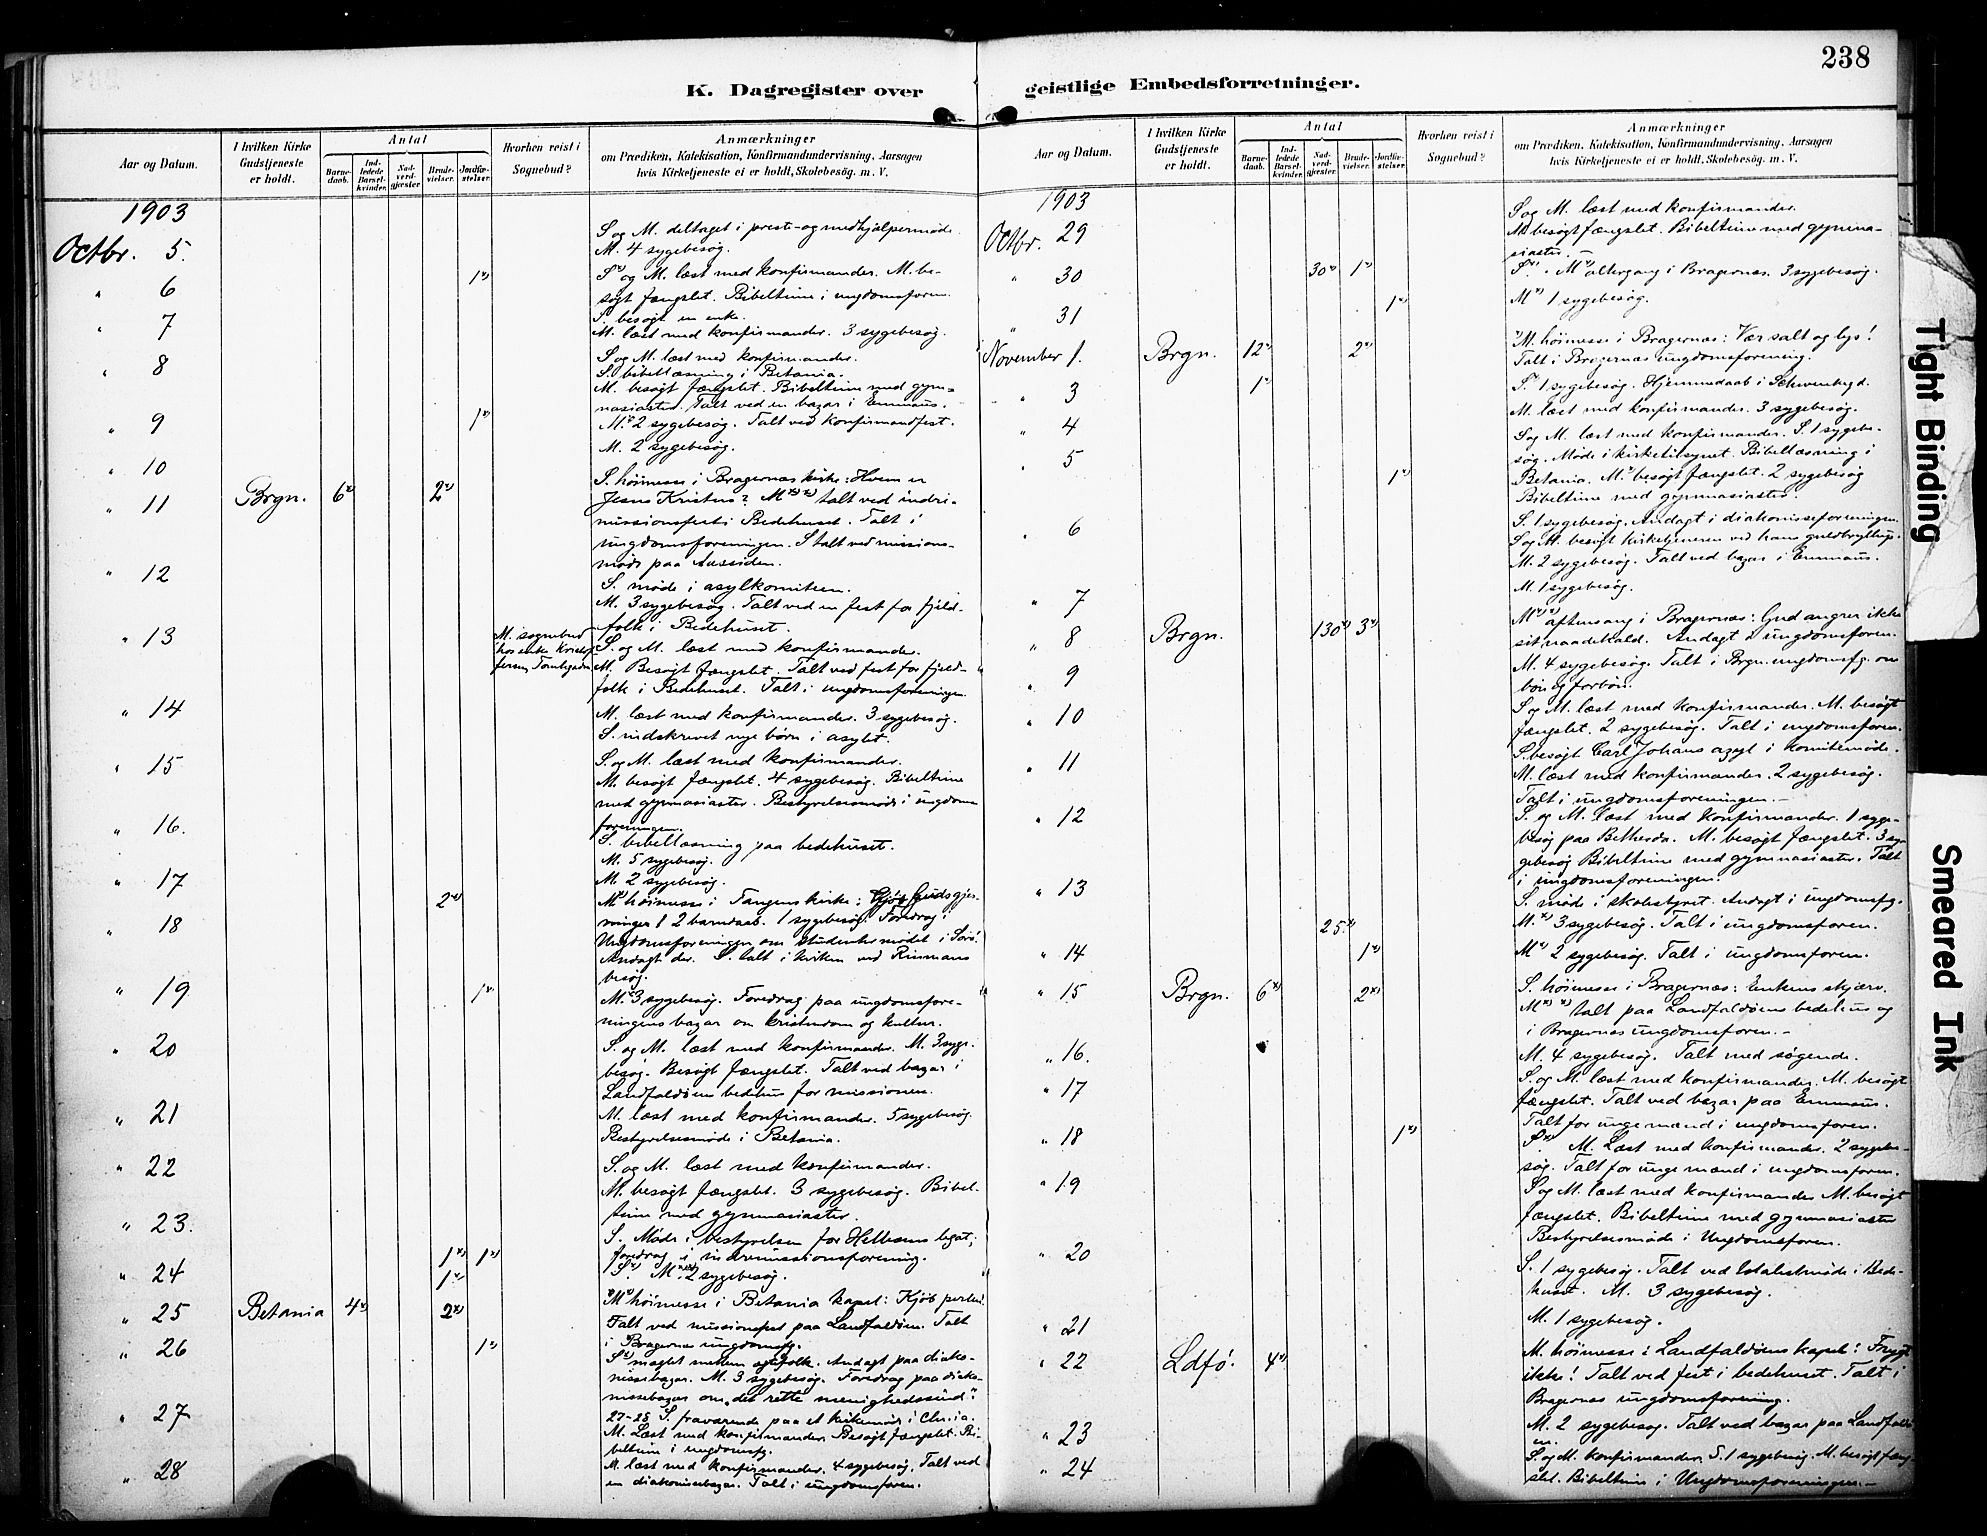 238
K. Dagregister over geistlige Embedsforretninger.
Aar og Datum.
I hvilken Kirke Gudstjeneste er holdt.
Antal
Barnedaab.
Indledede Barselkvinder.
Nadverdgjester
Brudevielser.
Jordfæstelser.
Hvorhen reist i Sognebud?
Anmærkninger
om Prædiken, Katekisation, Konfirmandundervisning, Aarsagen
hvis Kirketjeneste ei er holdt, Skolebesøg. m. V.
1903
Octbr. 5. S og M. deltaget i prest- og medhjælpermøde.
M. 4 sygebesøg.
" 6 1 S og M. læst med konfirmander. M. be-
søgt fængslet. Bibeltime i ungdomsforen.
S besøgt en enke.
" 7 M. læst med konfirmander. 3 sygebesøg.
" 8 S og M. læst med konfirmander.
S. bibellæsning i Betania.
M. besøgt fængslet. Bibeltime med gym-
nasiaster. Talt ved en bazar i Emmaus.
" 9 1 M. 2 sygebesøg. Talt ved konfirmandfest.
" 10 M. 2 sygebesøg.
" 11 Brgn. 6 2 S. høimesse i Bragernæs kirke: Hvem er
Jesus Kristus? M talt ved indre-
missionsfest i Bedehuset. Talt i
ungdomsforeningen. S talt ved missions-
møde paa Aassiden.
" 12 S. møde i asylkomiteen.
M. 3 sygebesøg. Talt ved en fest for fjeld-
folk i Bedehuset.
" 13 M. sognebud hos enke S. og M. læst med konfirmander.
M. Besøgt fængslet. Talt ved fest for fjeld-
folk i Bedehuset. Talt i ungdomsforeningen.
" 14 M. læst med konfirmander. 3 sygebesøg.
S. indskrevet nye børn i asylet.
" 15 S. og M. læst med konfirmander.
M. besøgt fængslet. 4 sygebesøg. Bibeltime
med gymnasiaster. Bestyrelsesmøde i ungdoms
foreningen.
" 16. S. bibellæsning paa bedehuset.
M. 5 sygebesøg.
" 17 M. 2 sygebesøg.
" 18 2 M høimesse i Tangens kirke: Gudsgjer-
ninger! 2 barnedaab. 1 sygebesøg. Foredrag i
Ungdomsforeningen om studentermødet i Sorø.
Andagt der. S. talt i kirken ved
besøg.
" 19 1 M. 3 sygebesøg. Foredrag paa ungdomsfore-
ningens bazar om kristendom og kultur.
" 20 S. og M. læst med konfirmander. M. 3 syge-
besøg. Besøgt fængslet. Talt ved bazar i
Landfaldøens bedehus for missionen.
" 21 M. læst med konfirmander. 5 sygebesøg.
Bestyrelsesmøde i Betania.
" 22 S. og M. læst med konfirmander.
M. besøgt fængslet. 3 sygebesøg. Bibel-
time med gymnasiaster.
" 23. S. Møde i bestyrelsen for legat;
1 1 foredrag i indremissionsforening.
" 24 1 S. M. 2 sygebesøg.
" 25 Betania 4 2 M høimesse i Betania kapel: Kjøb perlen!
Talt ved missionsfest paa Landfaldøen. Talt
i Bragernæs ungdomsfg.
" 26 1 S mæglet mellem ægtefolk. Andagt paa diako-
nissebazar. M. 3 sygebesøg. Foredrag paa diako-
nissebazar om "det rette menighedssind".
" 27 27-28 S. fraværende paa et kirkemøde i Chr.ia.
M. Læst med konfirmander. Besøgt fængslet. Bi-
beltime i ungdomsfg.
" 28 M. læst med konfirmander. 4 sygebesøg. Talt ved
en diakonissebazar. Talt i ungdomsforen.
Aar og Datum.
I hvilken Kirke Gudstjeneste er holdt.
Antal
Barnedaab.
Indledede Barselkvinder.
Nadverdgjester
Brudevielser.
Jordfæstelser.
Hvorhen reist i Sognebud?
Anmærkninger
om Prædiken, Katekisation, Konfirmandundervisning, Aarsagen
hvis Kirketjeneste ei er holdt. Skolebesøg. m. V.
1903
Octbr. 29 S og M. læst med konfirmander.
M besøgt fængslet. Bibeltime med gymna-
siaster.
" 30 30 1 S. M altergang i Bragernæs. 3 sygebesøg.
" 31 1 M 1 sygebesøg.
November 1. Brgn. 12 2 M. høimesse i Bragernæs: Vær salt og lys!
Talt i Bragernæs ungdomsforening.
" 3 1 S. 1 sygebesøg. Hjemmedaab i
M. læst med konfirmander. 3 sygebesøg.
" 4 S og M. læst med konfirmander. S. 1 sygebe-
søg. Møde i kirketilsynet. Bibellæsning i
" 5 1 Betania. M. besøgt fængslet. 2 sygebesøg
Bibeltime med gymnasiaster.
" 6 S. 1 sygebesøg. Andagt i diakonisseforeningen.
S og M. besøgt kirketjeneren ved hans guldbryllup.
M. 2 sygebesøg. Talt ved bazar i Emmaus.
" 7 M. 1 sygebesøg.
" 8 Brgn. 130 3 M aftensang i Bragernæs: Gud angrer ikke
sit naadekald. Andagt i ungdomsforen.
" 9 M. 4 sygebesøg. Talt i Brgn. ungdomsfg. om
bøn og forbøn.
" 10 S og M. læst med konfirmander. M. besøgt
fængslet. 2 sygebesøg. Talt i ungdomsforen.
" 11 S. besøgt Carl Johans asyl i komitemøde.
M. læst med konfirmander. 2 sygebesøg.
Talt i ungdomsforeningen.-
" 12 S. og M. læst med konfirmander. 1 syge-
besøg paa Bethesda. M. besøgt fængslet. 3 sy-
gebesøg Bibeltime med gymnasiaster. Talt
i ungdomsforeningen.
" 13 S. møde i skolestyret. Andagt i ungdomsfg.
25 M. 3 sygebesøg. Talt i ungdomsforen.
" 14 1 M 2 sygebesøg. Talt i ungdomsforen.
" 15 Brgn. 6 2 S. høimesse i Bragernæs: Enkens skjærv.
M talt paa Landfaldøens bedehus og
i Bragernæs ungdomsforen.-
" 16. M. 4 sygebesøg. Talt med søgende.
" 17 S. og M. læst med konfirmander. M. besøgt
fængslet. Talt ved bazar paa Emmaus.
Talt for unge mænd i ungdomsforen.
" 18 1 S. M. Læst med konfirmander. 2 sygebe-
søg. Talt for unge mænd i ungdomsforen.
" 19 S og M. læst med konfirmander M. besøgt
fængslet. Bibeltime med gymnasiaster
Bestyrelsesmøde i Ungdomsforen.
" 20 S. 1 sygebesøg. Talt ved totalistmøde i Bede-
huset. M. 3 sygebesøg.
" 21 M. 1 sygebesøg.
" 22 Ldfø. 4 M. høimesse i Landfaldøens kapel: Frygt
ikke! Talt ved fest i bedehuset. Talt i
Bragernæs ungdomsforening.
" 23 M. 2 sygebesøg. Talt ved bazar paa Landfaldø-
en.
" 24 S. og M. konfirmander. S. 1 sygebesøg. M. besøgt fæng-
slet. Bibeltime i Ungdomsforeningen.-
Tight Binding
Smeared Ink